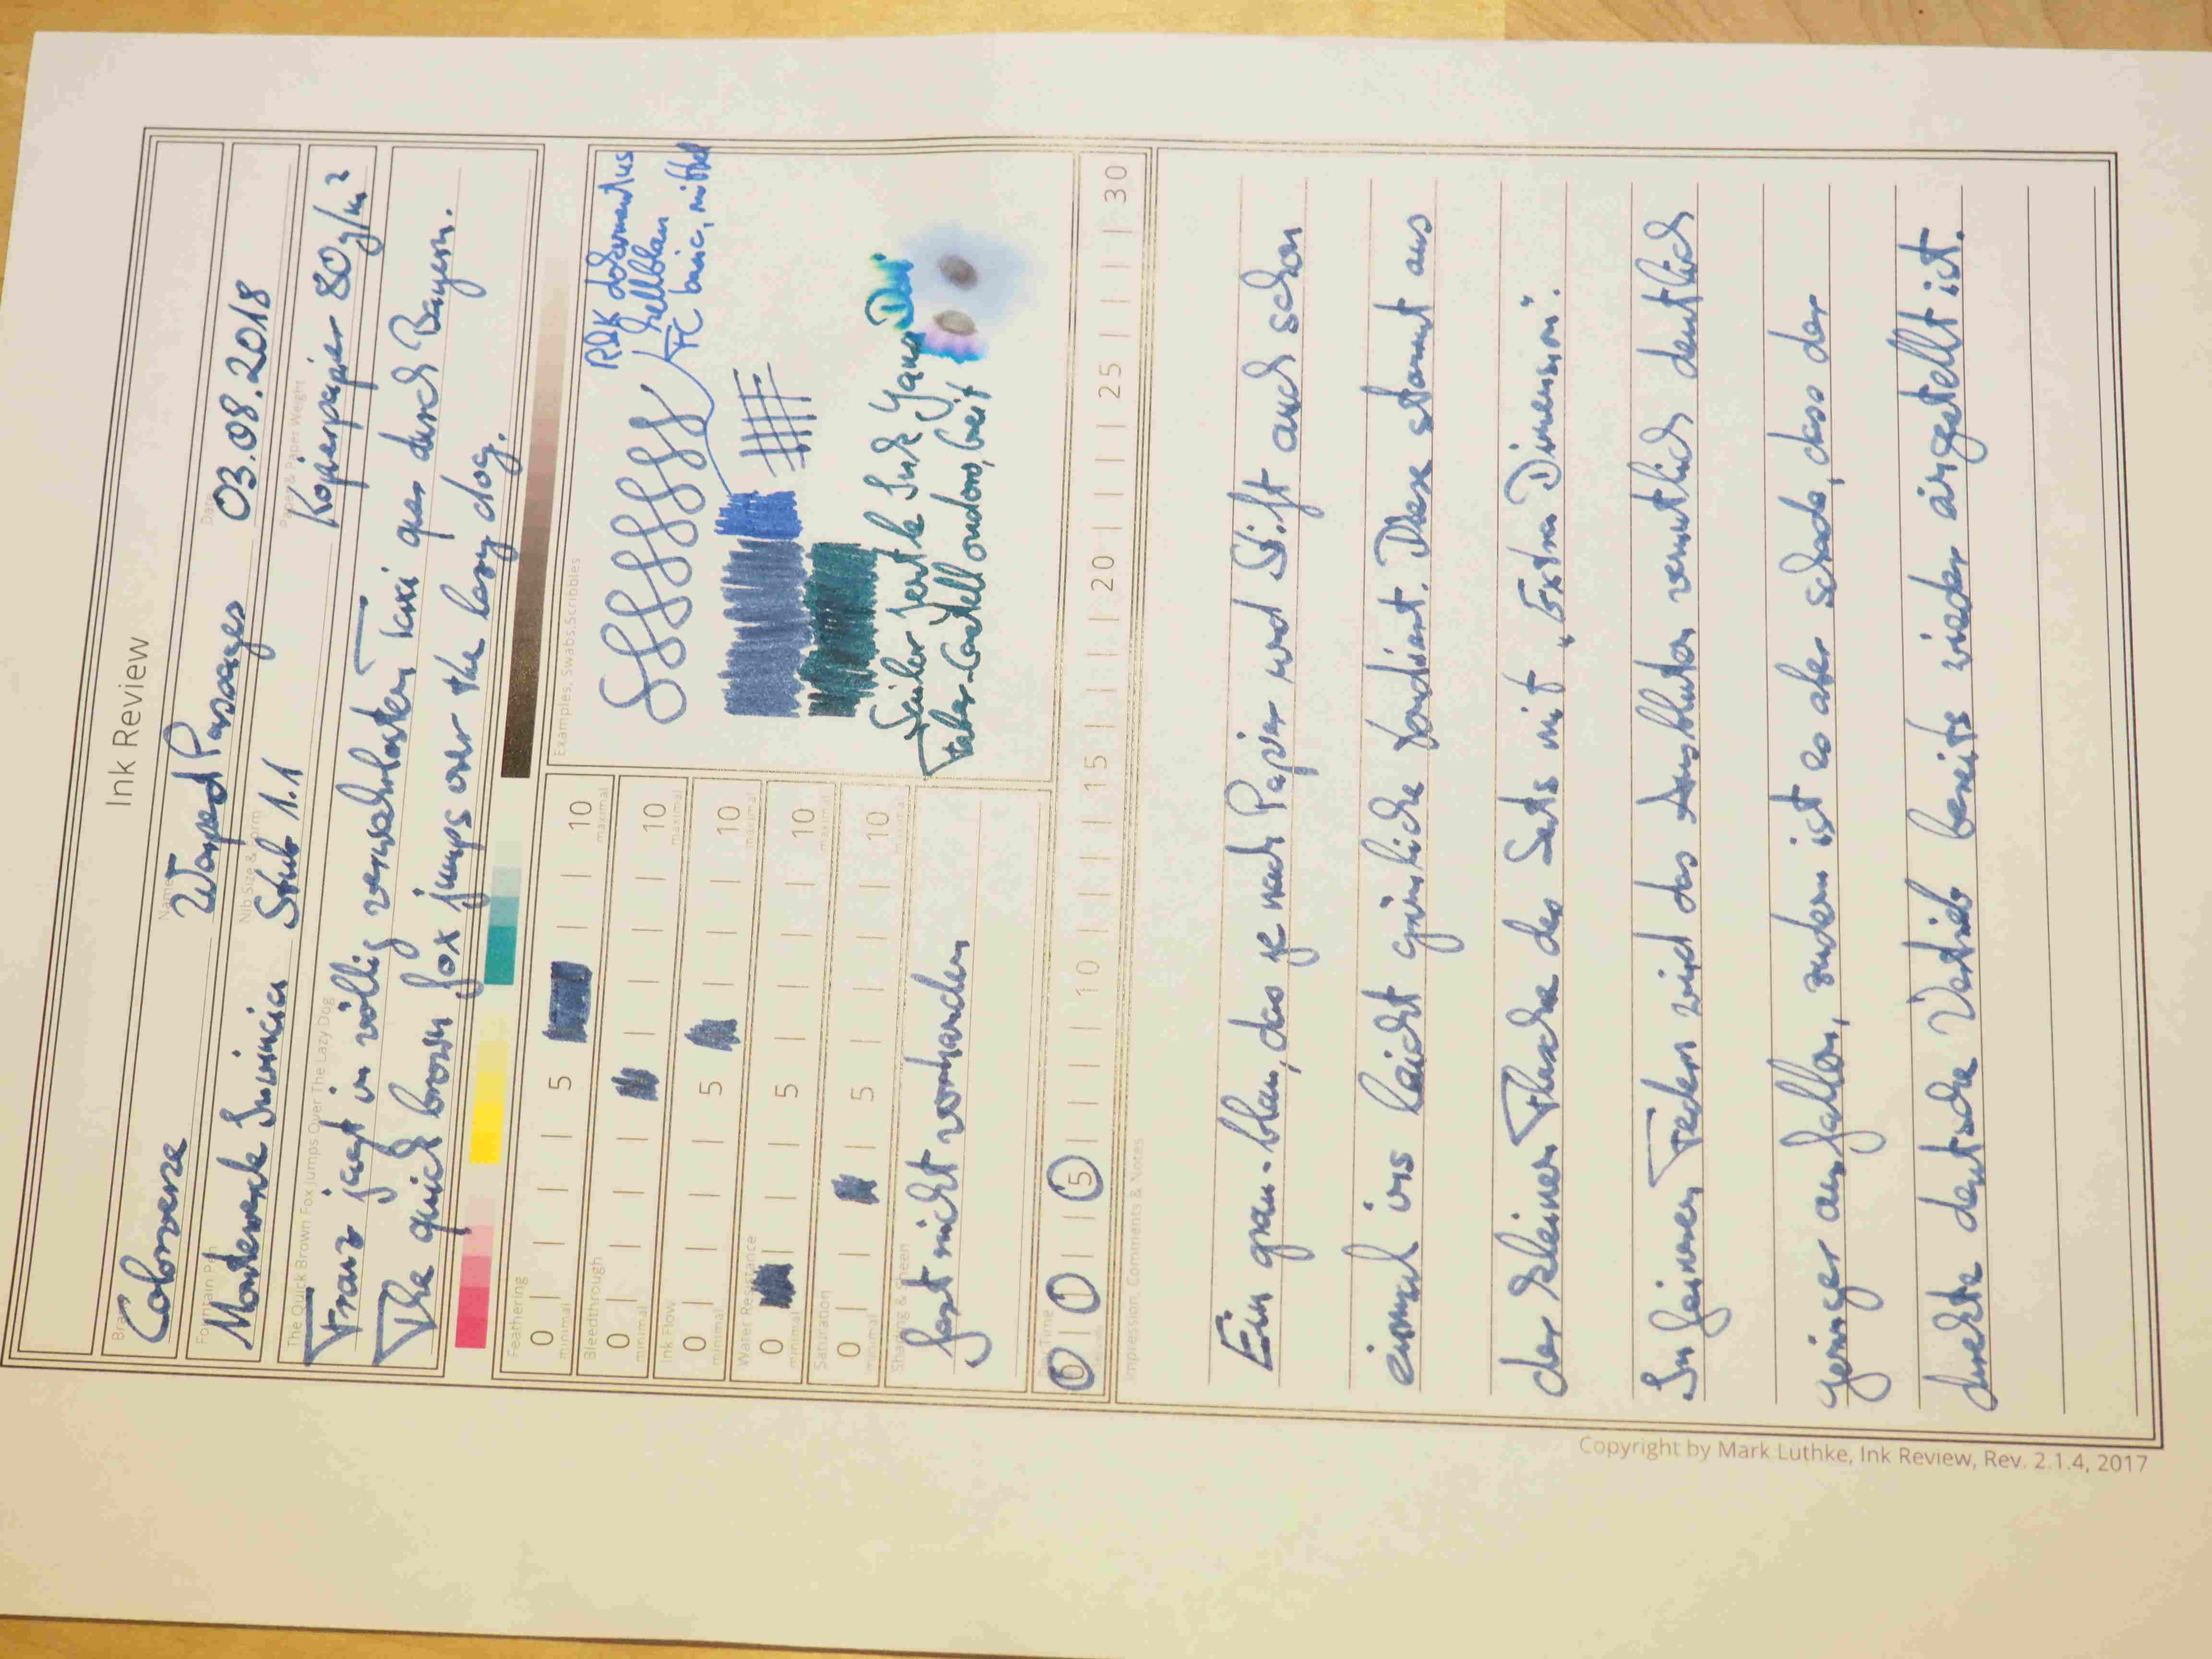 Ink Review
Brand
Colorverse
Name
Warped Passages
Date
03.08.2018
Fountain Pen
Monteverde Invincia
Nib Size & Form
Stub 1.1
Paper & Paper Weight
Kopierpapier 80g/m²
The Quick Brown Fox Jumps Over The Lazy Dog
Franz jagt im völlig verwahrlosten Taxi quer durch Bayern.
The quick brown fox jumps over the lazy dog.
Feathering
0 5 10
minimal maximal
Bleedthrough
0 5 10
minimal maximal
Ink Flow
0 5 10
minimal maximal
Water Resistance
0 5 10
minimal maximal
Saturation
0 5 10
minimal maximal
Shading & Sheen
fast nicht vorhanden
Examples, Swabs, Scribbles
R&K dokumentus
hellblau
FC basic, mittel
Seiler
Faber-Castell Loom, breit
Dry Time
0 5 10 15 20 25 30
Impression, Comments & Notes
Ein grau-blau, das je nach Papier und Stift auch schon
einmal ins leicht grünliche tendiert. Diese stammt aus
der kleinen Flasche des Sets mit „Extra Dimension".
In feineren Federn wird das Ausbluten vermutlich deutlich
geringer ausfallen, zudem ist es aber schade, dass der
direkte deutsche Vertrieb bereits wieder eingestellt ist.
Copyright by Mark Lüthke, Ink Review, Rev. 2.1.4, 2017